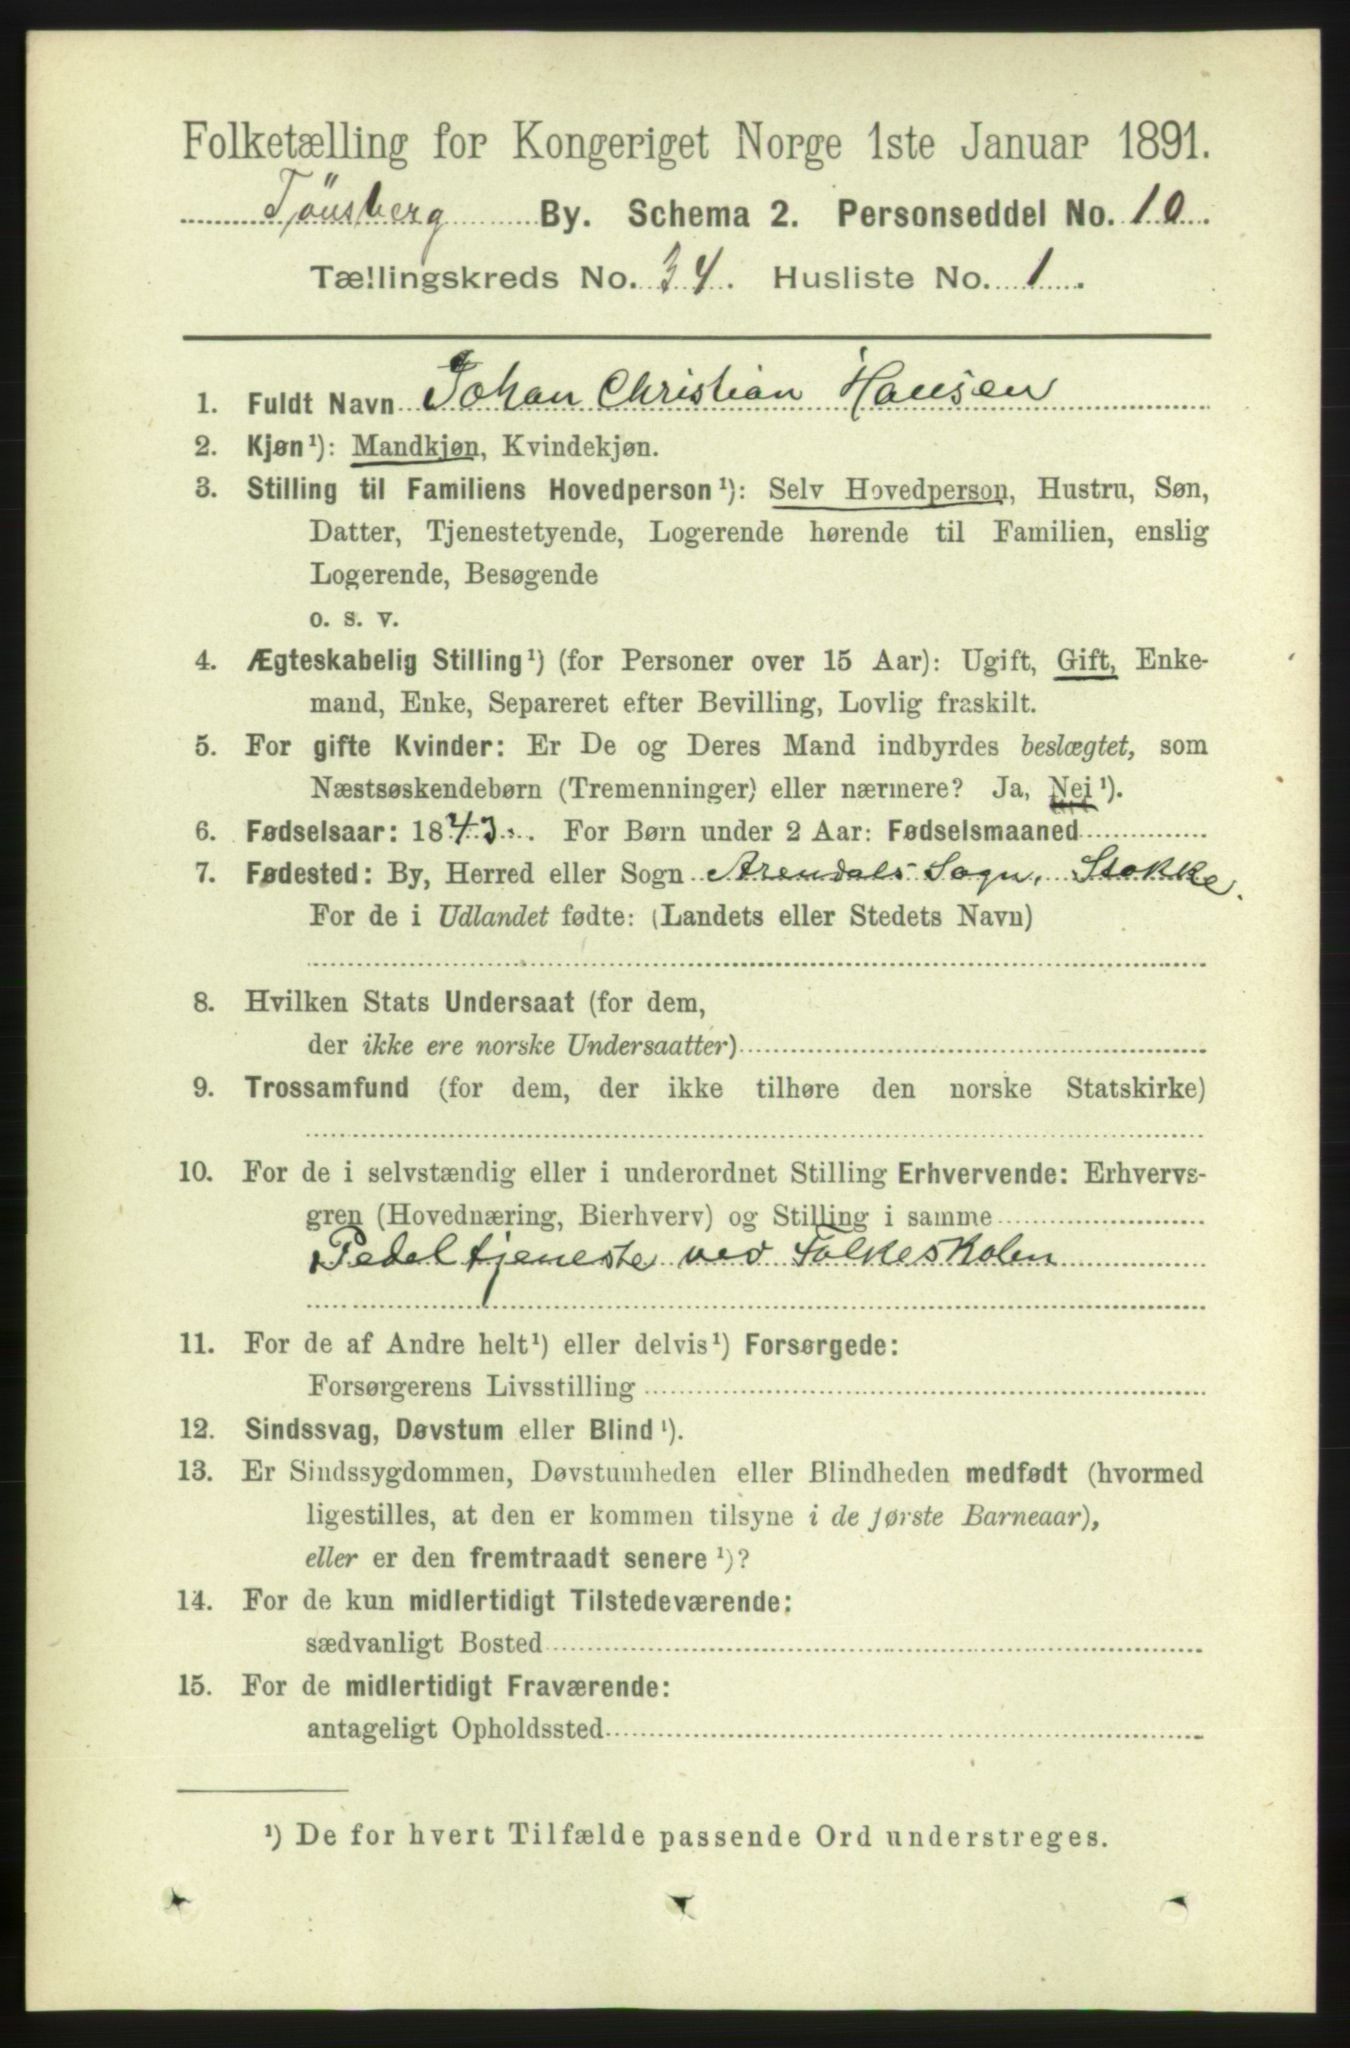 Folketælling for Kongeriget Norge 1ste Januar 1891.
Tönsberg By. Schema 2. Personseddel No. 10
Tællingskreds No. 34. Husliste No. 1.
1. Fuldt Navn Johan Christian Hansen
2. Kjøn¹): Mandkjøn, Kvindekjøn.
3. Stilling til Familiens Hovedperson¹): Selv Hovedperson, Hustru, Søn,
Datter, Tjenestetyende, Logerende hørende til Familien, enslig
Logerende, Besøgende
o. s. v.
4. Ægteskabelig Stilling¹) (for Personer over 15 Aar): Ugift, Gift, Enke-
mand, Enke, Separeret efter Bevilling, Lovlig fraskilt.
5. For gifte Kvinder: Er De og Deres Mand indbyrdes beslægtet, som
Næstsøskendebørn (Tremenninger) eller nærmere? Ja, Nei¹).
6. Fødselsaar: 1843. For Børn under 2 Aar: Fødselsmaaned
7. Fødested: By, Herred eller Sogn Arendals Sogn, Stokke.
For de i Udlandet fødte: (Landets eller Stedets Navn)
8. Hvilken Stats Undersaat (for dem,
der ikke ere norske Undersaatter)
9. Trossamfund (for dem, der ikke tilhøre den norske Statskirke)
10. For de i selvstændig eller i underordnet Stilling Erhvervende: Erhvervs-
gren (Hovednæring, Bierhverv) og Stilling i samme
Pedeltjeneste ved Folkeskolen
11. For de af Andre helt¹) eller delvis¹) Forsørgede:
Forsørgerens Livsstilling
12. Sindssvag, Døvstum eller Blind¹).
13. Er Sindssygdommen, Døvstumheden eller Blindheden medfødt (hvormed
ligestilles, at den er kommen tilsyne i de første Barneaar),
eller er den fremtraadt senere¹)?
14. For de kun midlertidigt Tilstedeværende:
sædvanligt Bosted
15. For de midlertidigt Fraværende:
antageligt Opholdssted
¹) De for hvert Tilfælde passende Ord understreges.